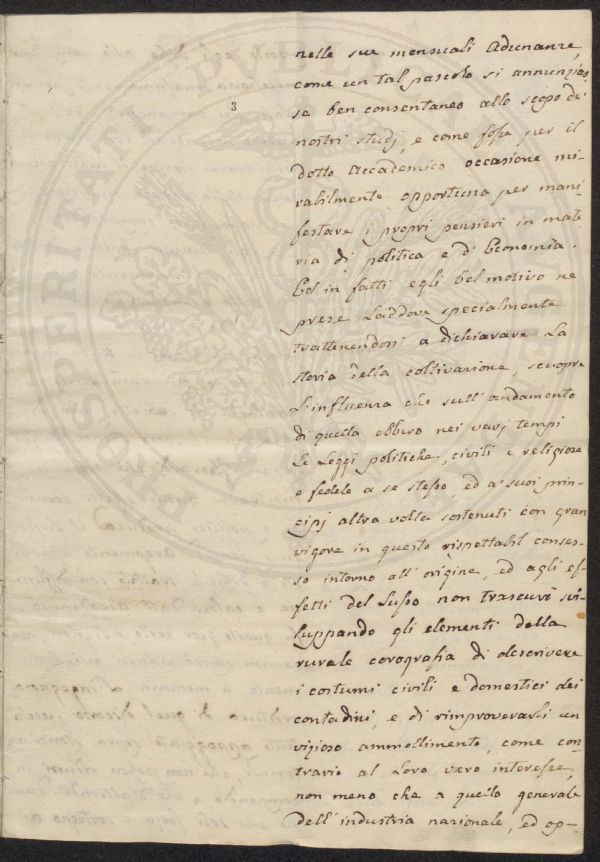 3
nelle sue mensuali Adunanze,
come un tal pascolo si annunzias
se ben consentaneo allo scopo de'
nostri studj, e come fosse per il
dotto Accademico occasione mi-
rabilmente opportuna per mani-
festare i propri pensieri in mate
ria di politica e d'Economia.
Bel in fatti egli bel motivo ne
prese Laddove specialmente
trattenendosi a dichiarare La
storia della coltivazione, scuopre
L'influenza che sull'andamento
di questa ebbero nei varj tempi
Le Leggi politiche, civili e religiose
e fedele a se stesso, ed a' suoi prin-
cipj altra volta sostenuti con gran
vigore in questo rispettabil conses-
so intorno all'origine, ed agli ef-
fetti del Lusso non trascurò svi-
luppando gli elementi della
rurale corografia di descrivere
i costumi civili e domestici dei
contadini, e di rimproverarli un
vizioso ammollimento, come con
trario al Loro vero interesse,
non meno che a quello generale
dell'industria nazionale, ed op-
PROSPERITATI PUBLICAE